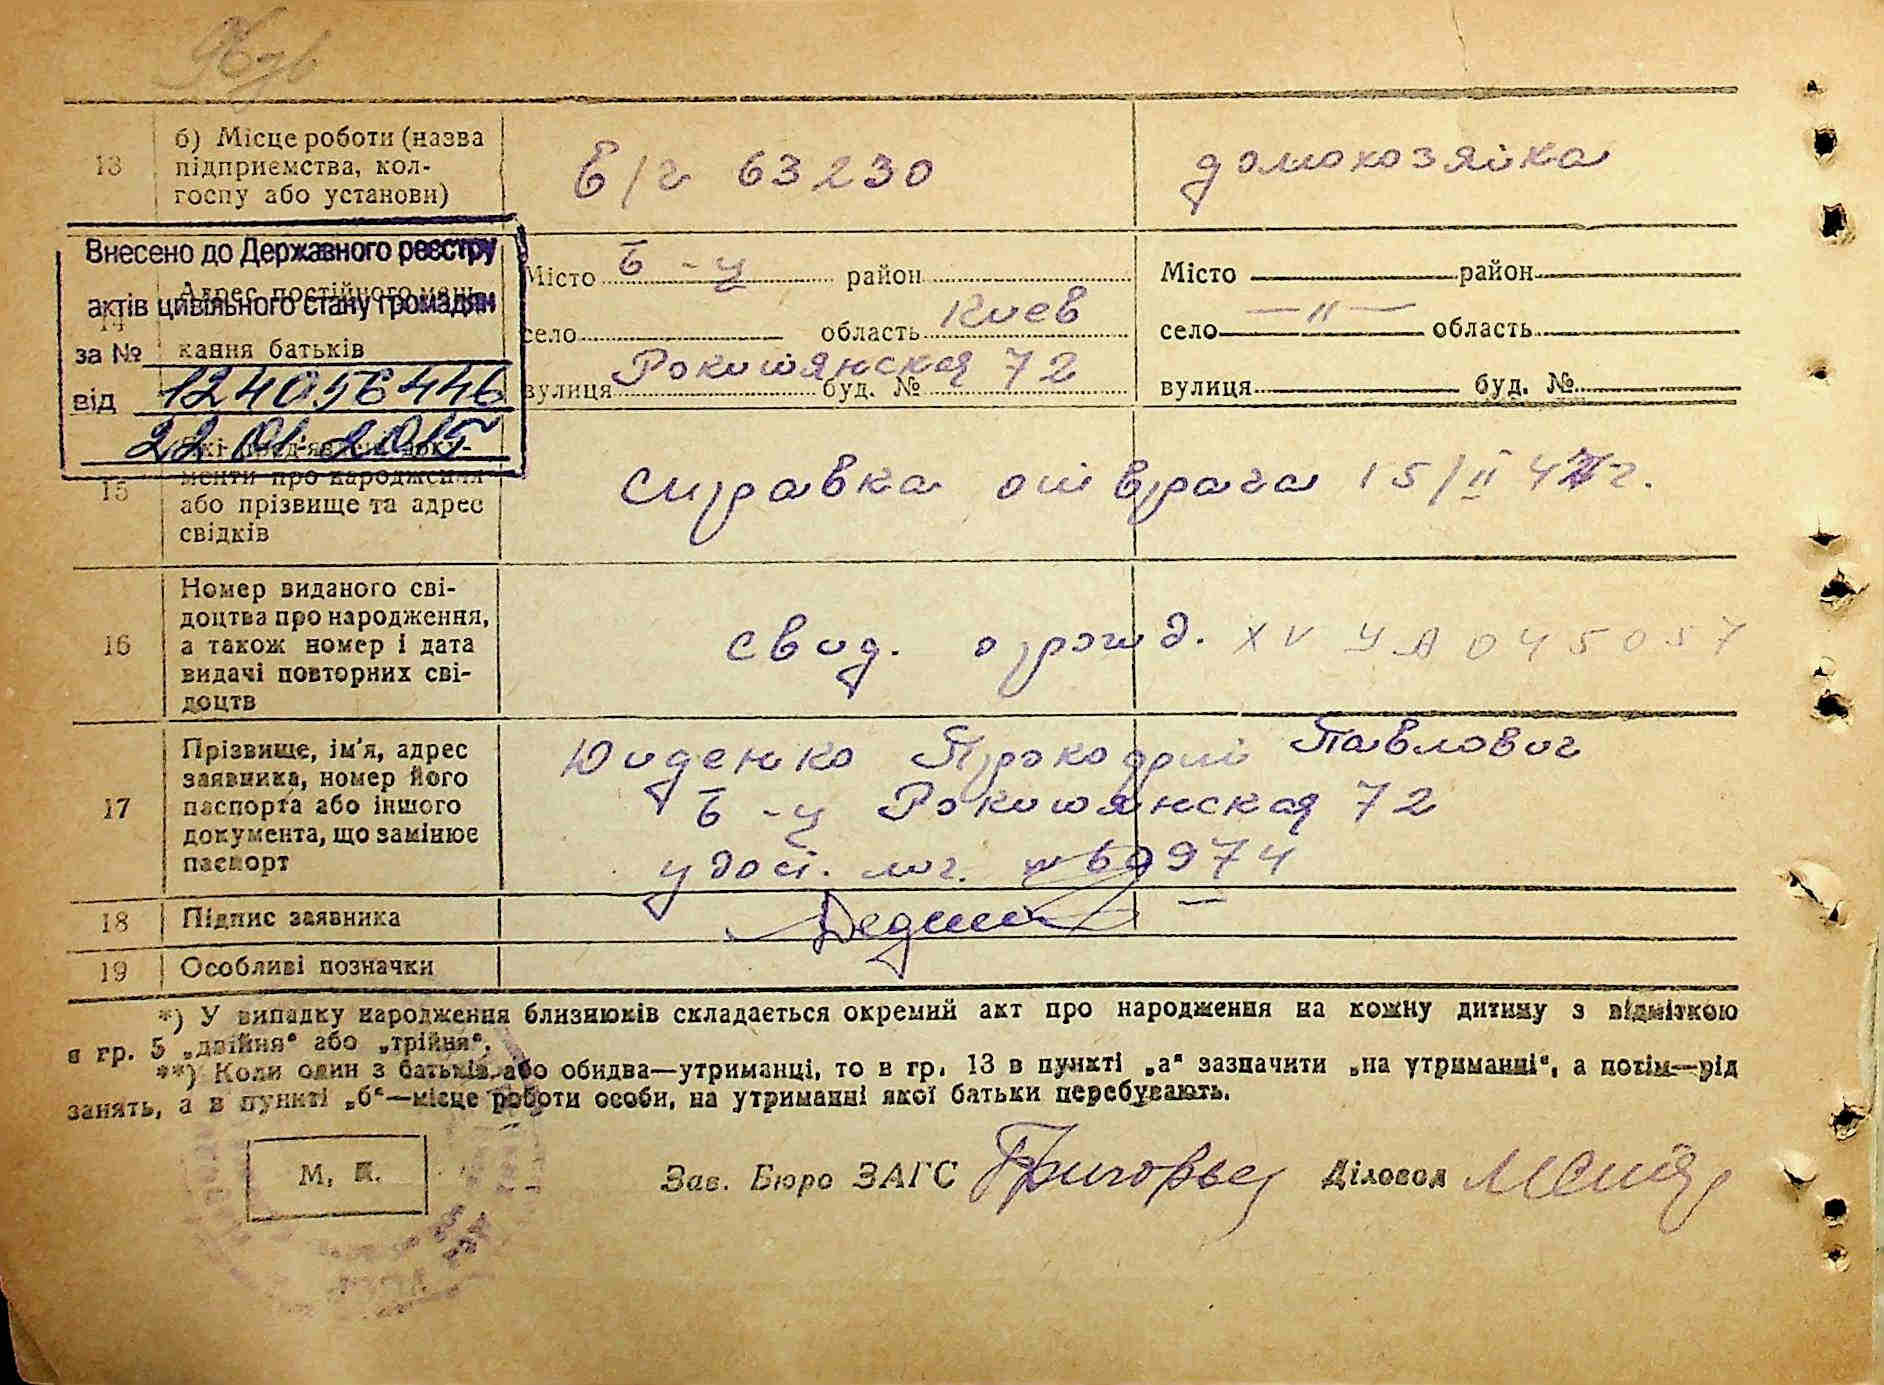 13
б) Місце роботи (назва
підприємства, кол-
госпу або установи)
в/г 63230
домохозяйка
Внесено до Державного реєстру
актів цивільного стану громадян
за №
від
124056446
22.01.2015
14
Адрес постійного меш-
кання батьків
Місто Б-ц район
село область Киев
вулиця Рокитянская 72 буд. №
Місто район
село —〃— область
вулиця буд. №
15
менти про народження
або прізвище та адрес
свідків
справка от врача 15/II 47г.
16
Номер виданого сві-
доцтва про народження,
а також номер і дата
видачі повторних сві-
доцтв
свид. о рожд. XV УА 045057
17
Прізвище, ім'я, адрес
заявника, номер його
паспорта або іншого
документа, що замінює
паспорт
Диденко Прокофий Павлович
Б-ц Рокитянская 72
удост. лич. № 60974
18
Підпис заявника
19
Особливі позначки
*) У випадку народження близнюків складається окремий акт про народження на кожну дитину з відміткою
в гр. 5 „двійня“ або „трійня“.
**) Коли один з батьків або обидва—утриманці, то в гр. 13 в пункті „а“ зазначити „на утриманні“, а потім—рід
занять, а в пункті „б“—місце роботи особи, на утриманні якої батьки перебувають.
М. П.
Зав. Бюро ЗАГС
Діловод